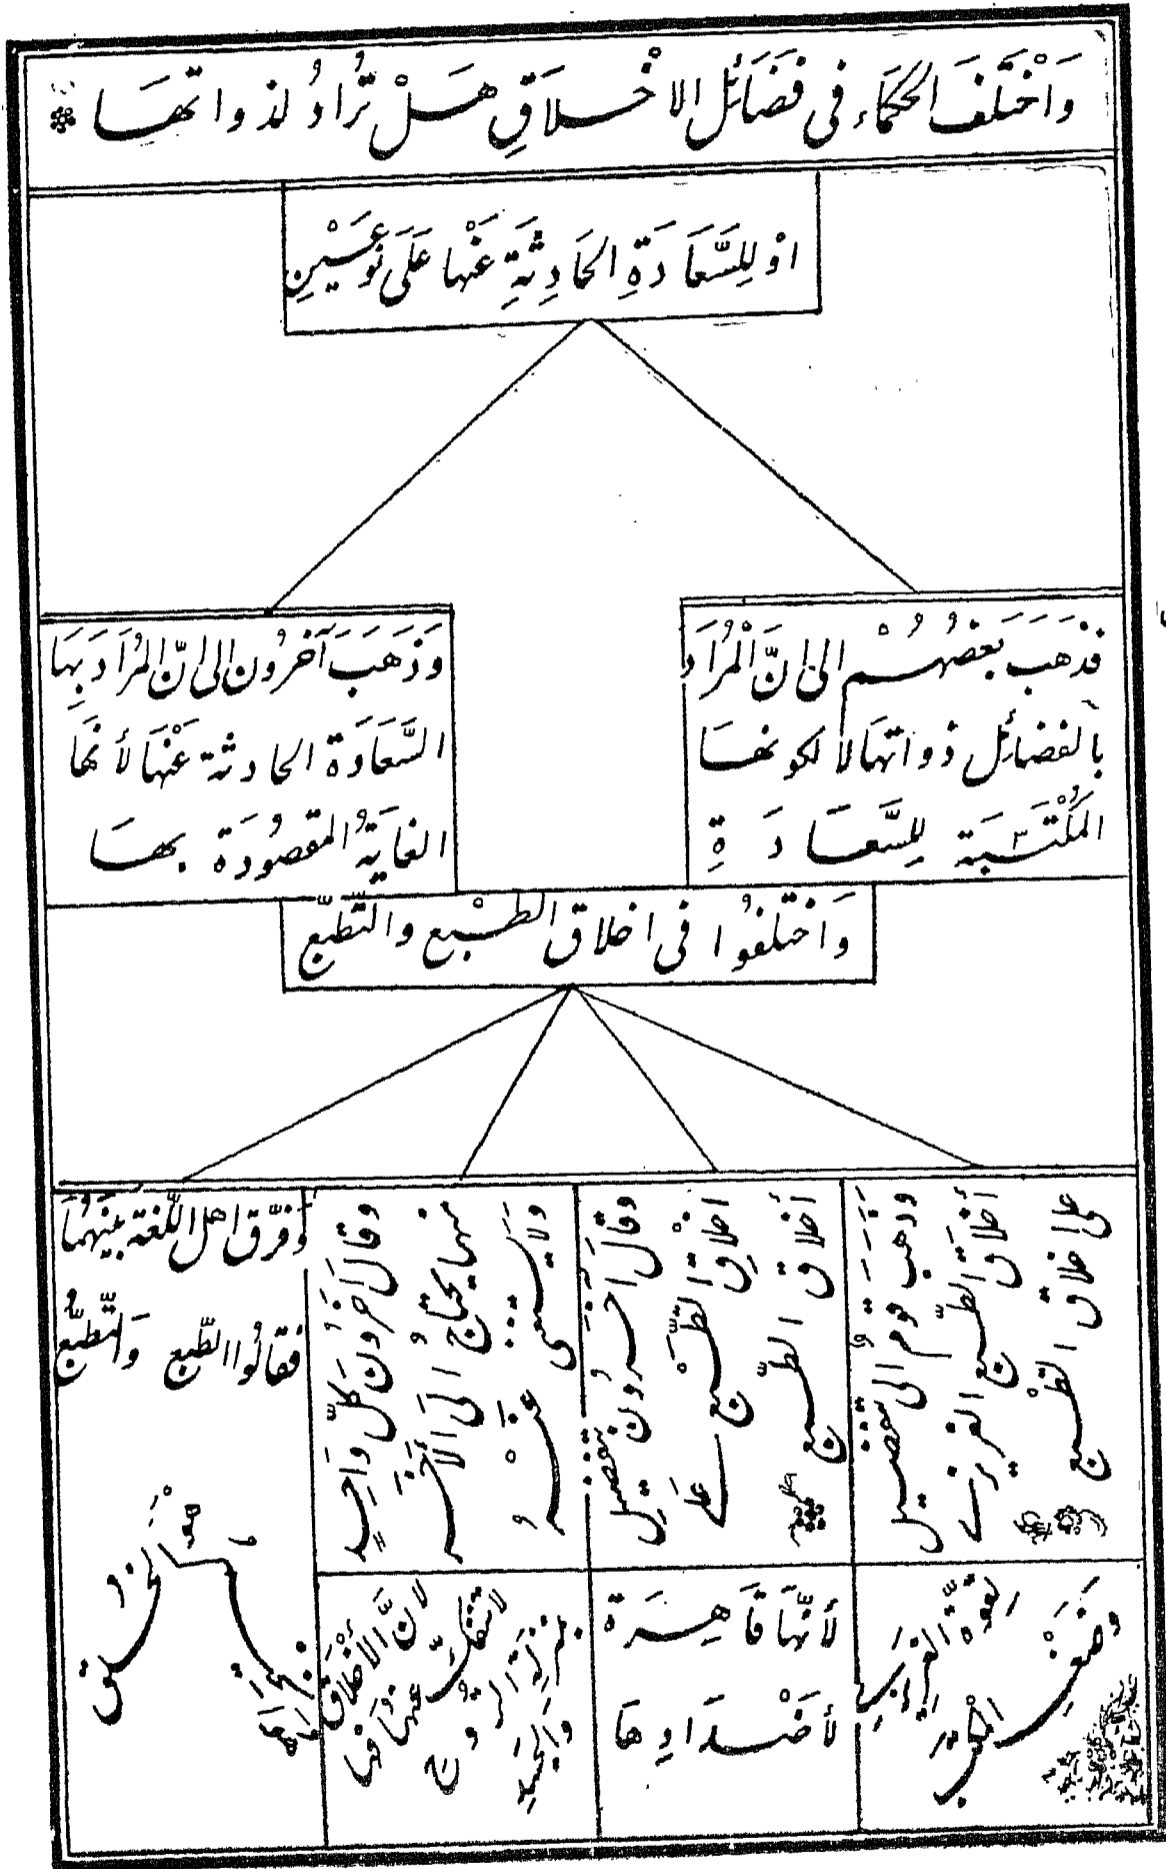 وَاخْتَلَفَ الحُكَمَاء فى فَضَائِل الاخْلَاقِ هَلْ تُرَادُ لذواتهَا
اوْ لِلسَّعَادَةِ الحَادِثَةِ عَنْهَا عَلَى نَوْعَيْنِ
فذهَبَ بَعضُهُمْ الى انَّ الْمُرَاد
بالفضائِل ذواتهَا لا لكونهَا
المكْتَسِبَة لِلسَّعَادَةِ
وَذَهَبَ آخرُون الى انّ المُرَادَ بِهَا
السَّعَادَة الحادثة عَنْهَا لأنهَا
الغايَةُ المقصُودَة بهَا
وَاختلفُوا فى اخلاق الطبْع والتَّطبّع
وذهَبَ قومٌ الى تفضيل
أخْلَاق الطّبع الغريزى
على اخلاق التطبع
لقوّة الغريزى
وضعْفِ المكتسب
وقالَ آخَرُون بتفضيل
اخْلاقِ التطَبّع على
أخلاق الطّبع
لأنّهَا قَاهِرَة
لأضْدَادِهَا
وقالَ آخَرُون كلّ وَاحِدٍ
منهما يحتاج الَى الأخر
ولا يستغنى عنْهُ
لانَّ الأخْلَاق
لا تنفكّ عنهما
بمنزلة الروُح
وَالجَسَدِ
وَفرَّق اهل اللّغة بينهُمَا
فقالُوا الطَّبع وَالتَّطبُّع
هُوَ الخُلق